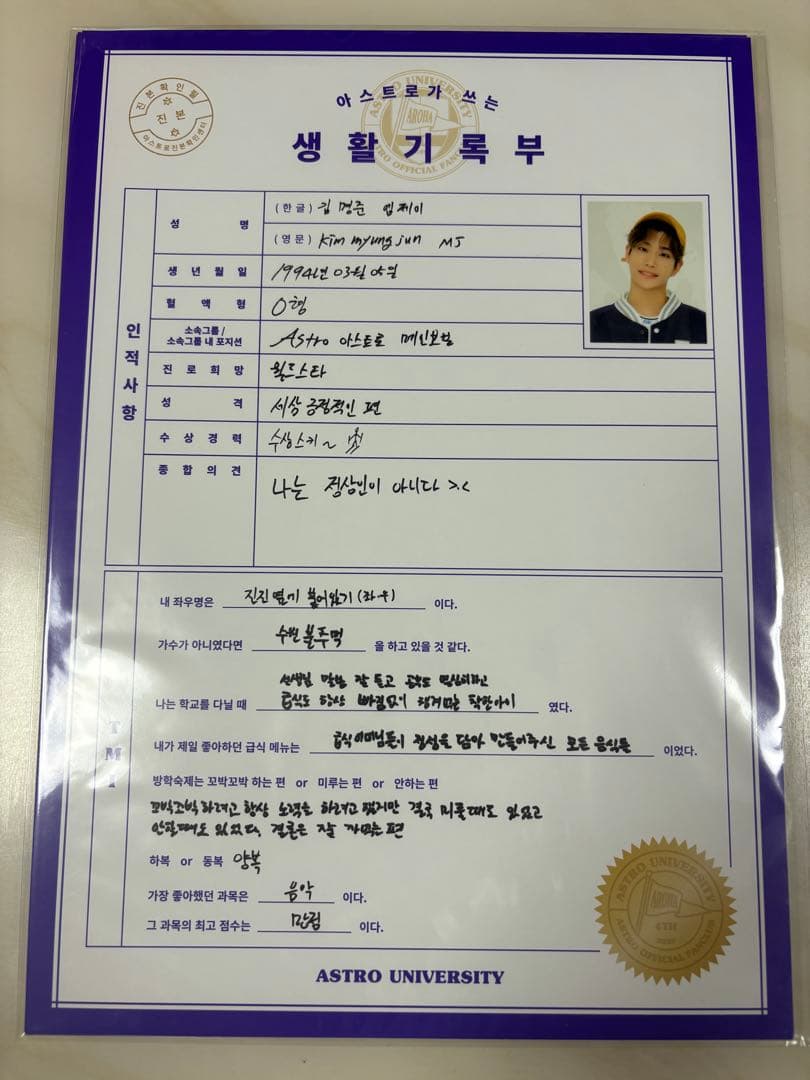 진본확인필
진본
아스트로진본확인센터
ASTRO UNIVERSITY
AROHA
ASTRO OFFICIAL FANCLUB
아스트로가 쓰는
생활기록부
인적사항
성 명
(한글) 김명준 엠제이
(영문) Kim myung jun MJ
생년월일 1994년 03월 05일
혈액형 O형
소속그룹 /
소속그룹 내 포지션 Astro 아스트로 메인보컬
진로희망 월드스타
성격 세상 긍정적인 편
수상경력 수상스키~
종합의견 나는 정상인이 아니다 >.<
TMI
내 좌우명은 진진 옆에 붙어있기 (좌우) 이다.
가수가 아니였다면 수빈 불주먹 을 하고 있을 것 같다.
선생님 말씀 잘 듣고 공부도 열심히하고
나는 학교를 다닐 때 급식도 항상 빠짐없이 챙겨먹는 착한아이 였다.
내가 제일 좋아하던 급식 메뉴는 급식이모님들이 정성을 담아 만들어주신 모든 음식들 이었다.
방학숙제는 꼬박꼬박 하는 편 or 미루는 편 or 안하는 편
꼬박꼬박 하려고 항상 노력을 하려고 했지만 결국 미룰때도 있었고
안할때도 있었다. 결론은 잘 까먹는 편
하복 or 동복 양복
가장 좋아했던 과목은 음악 이다.
그 과목의 최고 점수는 만점 이다.
ASTRO UNIVERSITY
AROHA
4TH
ASTRO OFFICIAL FANCLUB
ASTRO UNIVERSITY